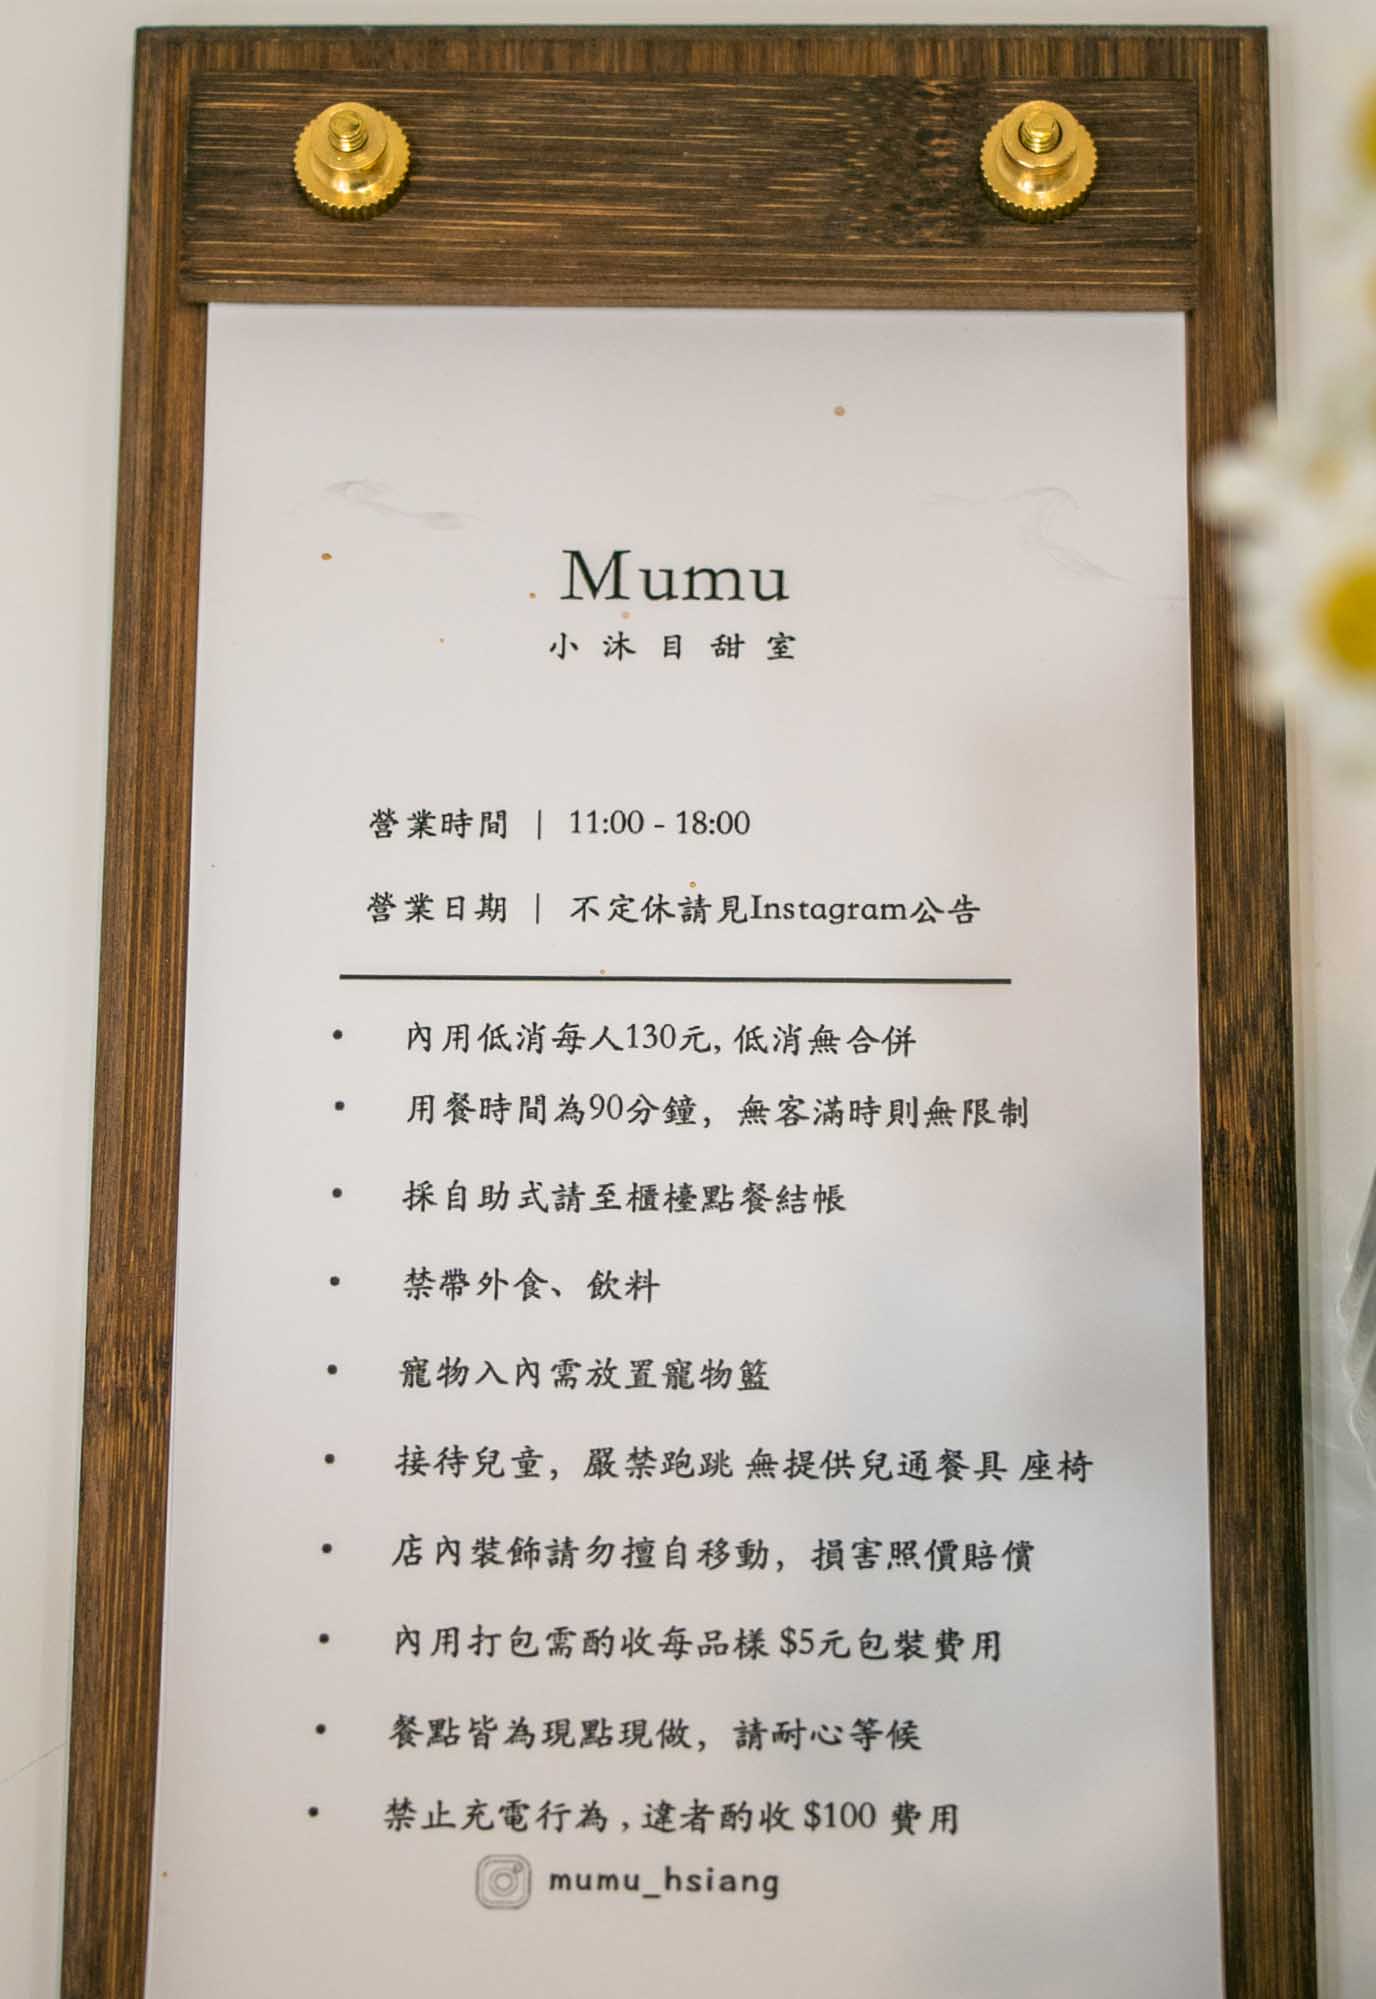 Mumu
小沐目甜室
營業時間 | 11:00 - 18:00
營業日期 | 不定休請見Instagram公告
• 內用低消每人130元, 低消無合併
• 用餐時間為90分鐘，無客滿時則無限制
• 採自助式請至櫃檯點餐結帳
• 禁帶外食、飲料
• 寵物入內需放置寵物籃
• 接待兒童，嚴禁跑跳 無提供兒通餐具 座椅
• 店內裝飾請勿擅自移動，損害照價賠償
• 內用打包需酌收每品樣 $5元包裝費用
• 餐點皆為現點現做，請耐心等候
• 禁止充電行為 , 違者酌收 $100 費用
mumu_hsiang